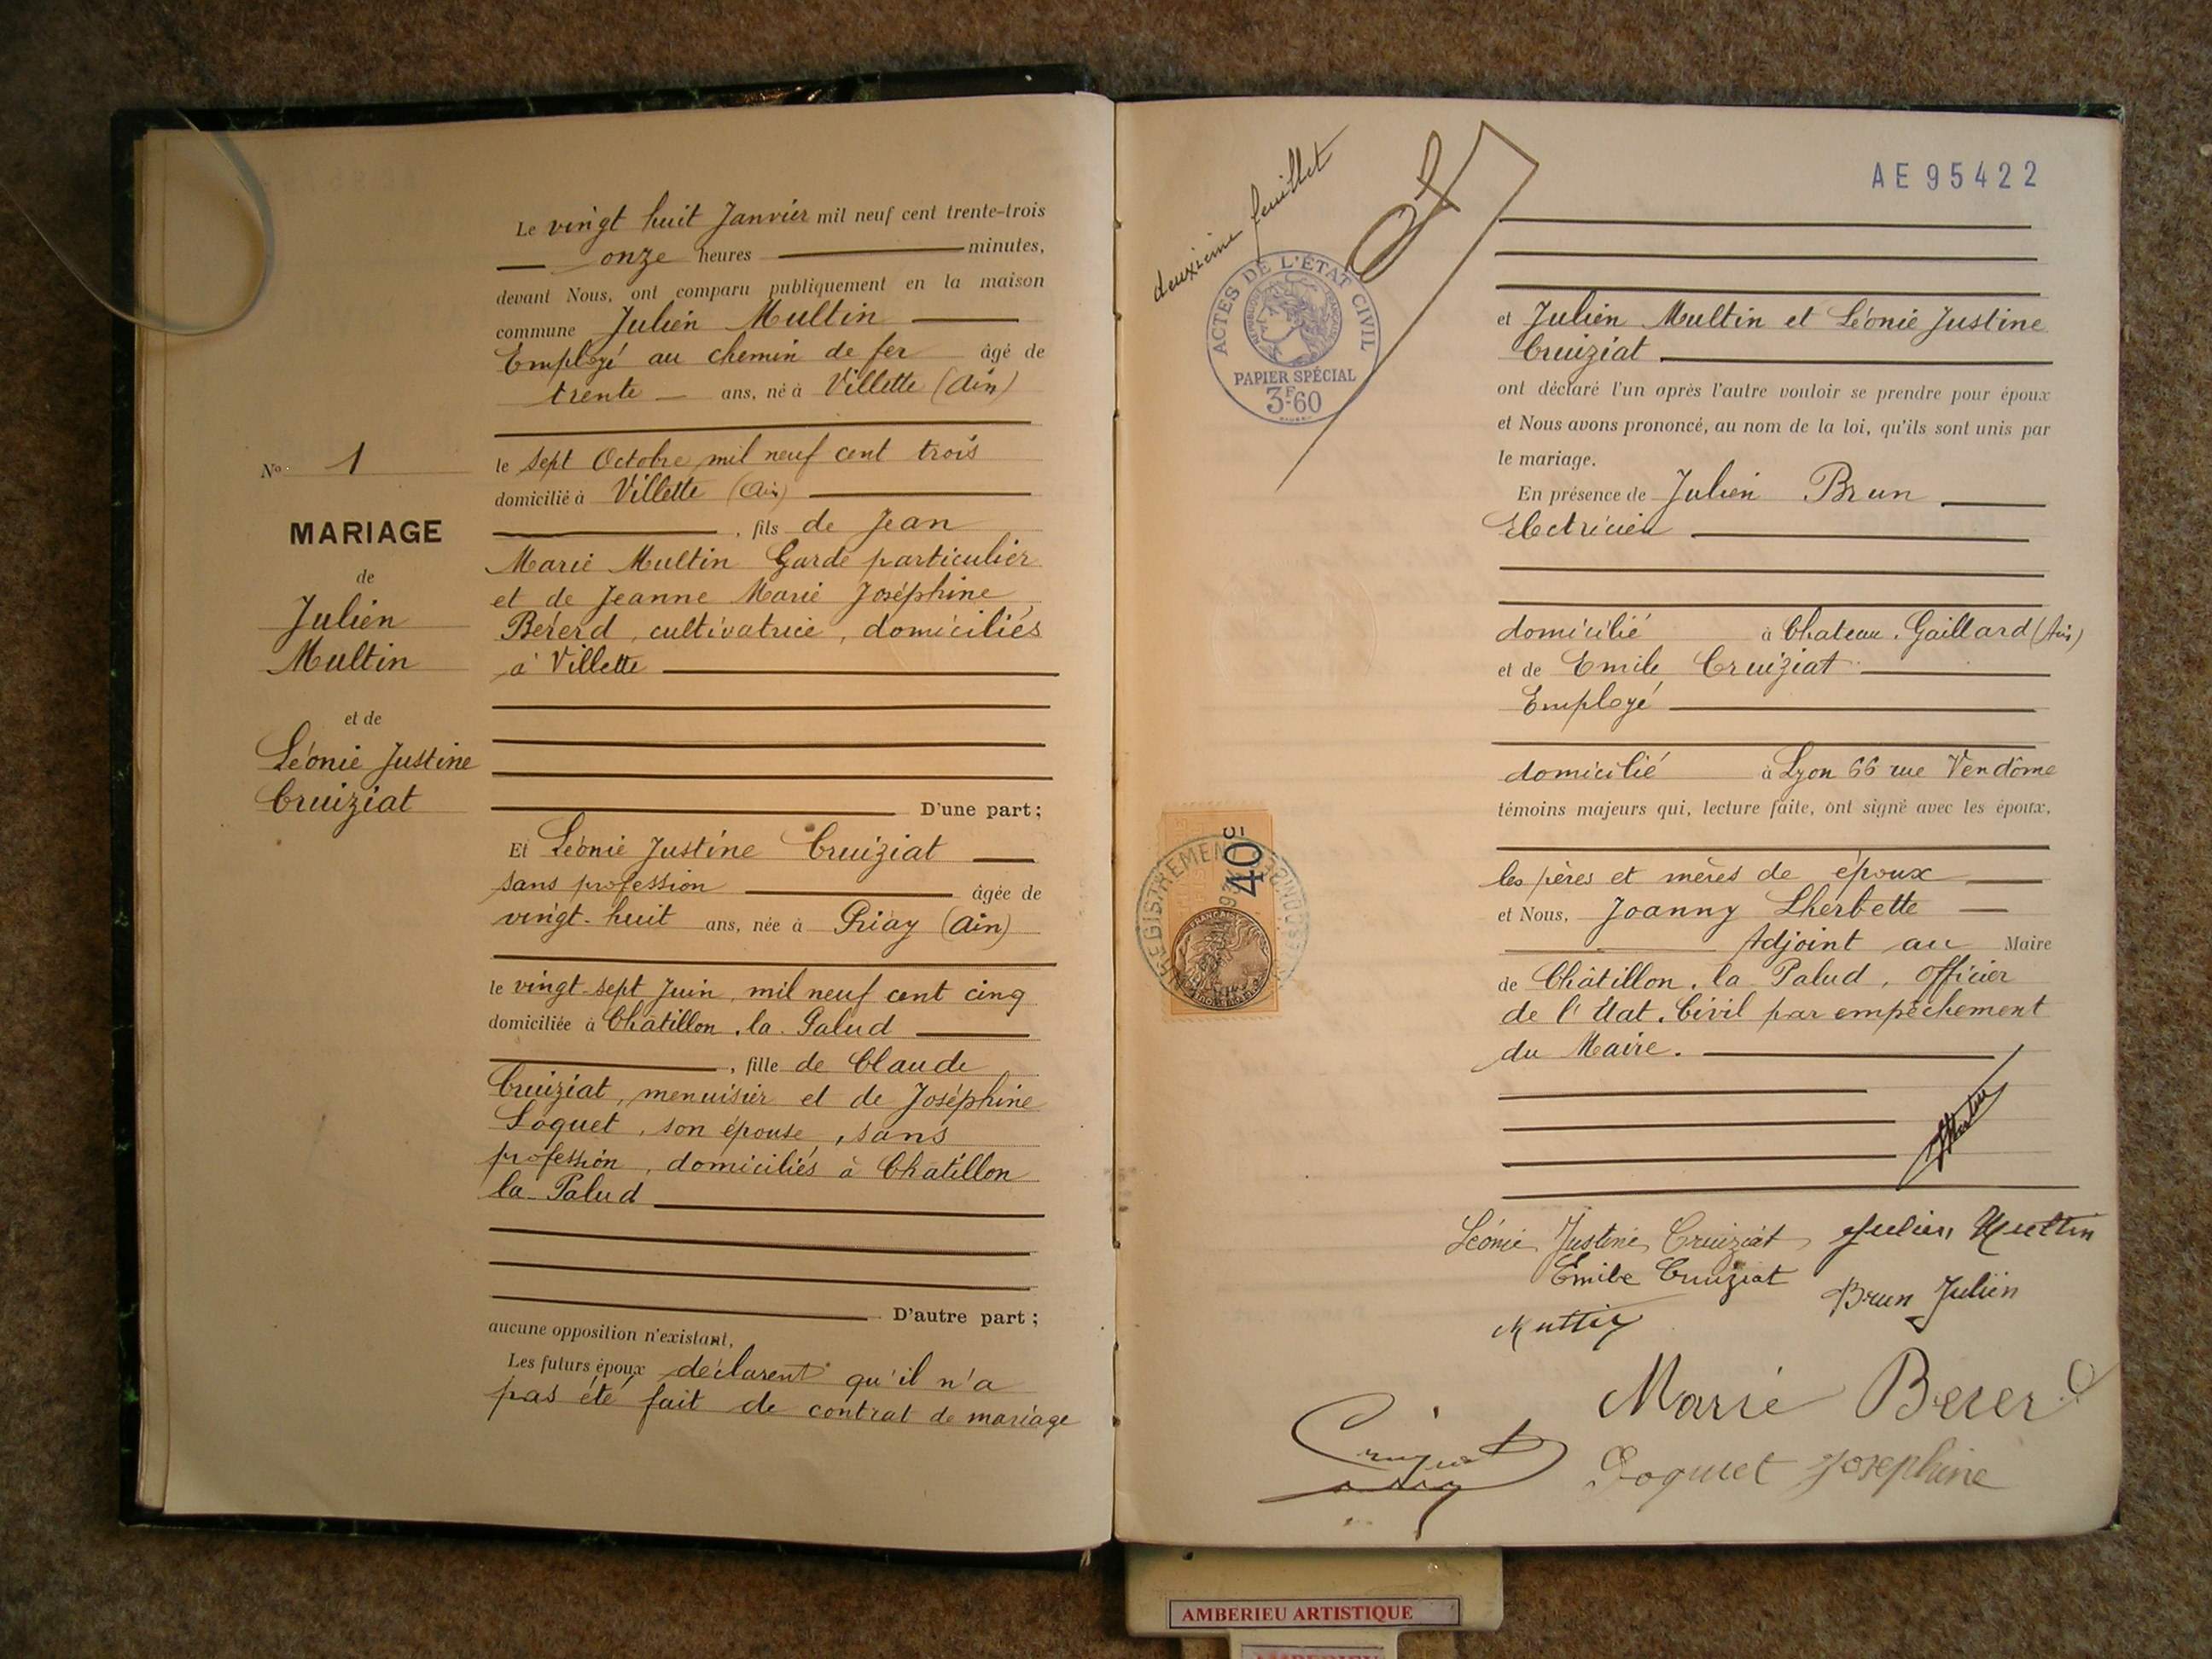 Le vingt huit Janvier mil neuf cent trente-trois
onze heures minutes,
devant Nous, ont comparu publiquement en la maison
commune Julien Multin
Employé au chemin de fer âgé de
trente ans, né à Villette (Ain)
le sept Octobre mil neuf cent trois
domicilié à Villette (Ain)
, fils de Jean
Marie Multin Garde particulier
et de Jeanne Marie Joséphine
Bererd, cultivatrice, domiciliés
à Villette
D'une part ;
Et Léonie Justine Cruiziat
sans profession âgée de
vingt-huit ans, née à Priay (Ain)
le vingt-sept Juin, mil neuf cent cinq
domiciliée à Châtillon-la-Palud
, fille de Claude
Cruiziat, menuisier et de Joséphine
Loquet, son épouse, sans
profession, domiciliés à Chatillon
la-Palud
D'autre part ;
aucune opposition n'existant,
Les futurs époux déclarent qu'il n'a
pas été fait de contrat de mariage
No 1
MARIAGE
de
Julien
Multin
et de
Léonie Justine
Cruiziat
deuxième feuillet
ACTES DE L'ÉTAT CIVIL
PAPIER SPÉCIAL
3F60
AE 95422
et Julien Multin et Léonie Justine
Cruiziat
ont déclaré l'un après l'autre vouloir se prendre pour époux
et Nous avons prononcé, au nom de la loi, qu'ils sont unis par
le mariage.
En présence de Julien Brun
Electricien
domicilié à Chateau-Gaillard (Ain)
et de Emile Cruiziat
Employé
domicilié à Lyon 66 rue Vendôme
témoins majeurs qui, lecture faite, ont signé avec les époux,
les pères et mères de époux
et Nous, Joanny Lherbette
Adjoint au Maire
de Châtillon-la-Palud, officier
de l'Etat-Civil par empêchement
du Maire.
40c
Léonie Justine Cruiziat Julien Multin
Emile Cruiziat Brun Julien
Multin
Marie Berer
Cruiziat
Loquet Josephine
AMBERIEU ARTISTIQUE